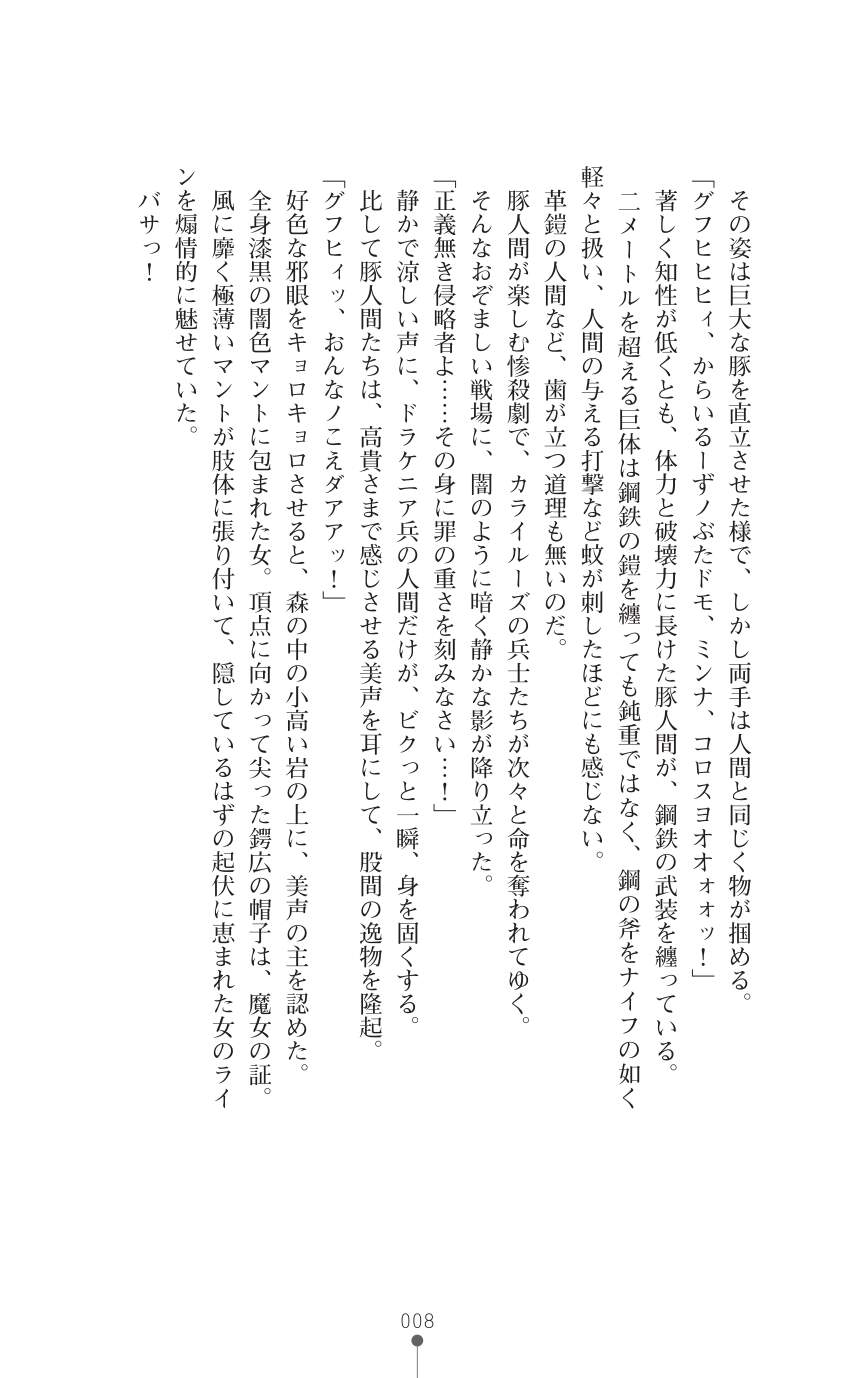 その姿は巨大な豚を直立させた様で、しかし両手は人間と同じく物が掴める。
「グフヒヒヒィ、からいるーずノぶたドモ、ミンナ、コロスヨオオォォッ！」
著しく知性が低くとも、体力と破壊力に長けた豚人間が、鋼鉄の武装を纏っている。
二メートルを超える巨体は鋼鉄の鎧を纏っても鈍重ではなく、鋼の斧をナイフの如く
軽々と扱い、人間の与える打撃など蚊が刺したほどにも感じない。
革鎧の人間など、歯が立つ道理も無いのだ。
豚人間が楽しむ惨殺劇で、カライルーズの兵士たちが次々と命を奪われてゆく。
そんなおぞましい戦場に、闇のように暗く静かな影が降り立った。
「正義無き侵略者よ……その身に罪の重さを刻みなさい…！」
静かで涼しい声に、ドラケニア兵の人間だけが、ビクっと一瞬、身を固くする。
比して豚人間たちは、高貴さまで感じさせる美声を耳にして、股間の逸物を隆起。
「グフヒィッ、おんなノこえダアアッ！」
好色な邪眼をキョロキョロさせると、森の中の小高い岩の上に、美声の主を認めた。
全身漆黒の闇色マントに包まれた女。頂点に向かって尖った鍔広の帽子は、魔女の証。
風に靡く極薄いマントが肢体に張り付いて、隠しているはずの起伏に恵まれた女のライ
ンを煽情的に魅せていた。
バサっ！
008